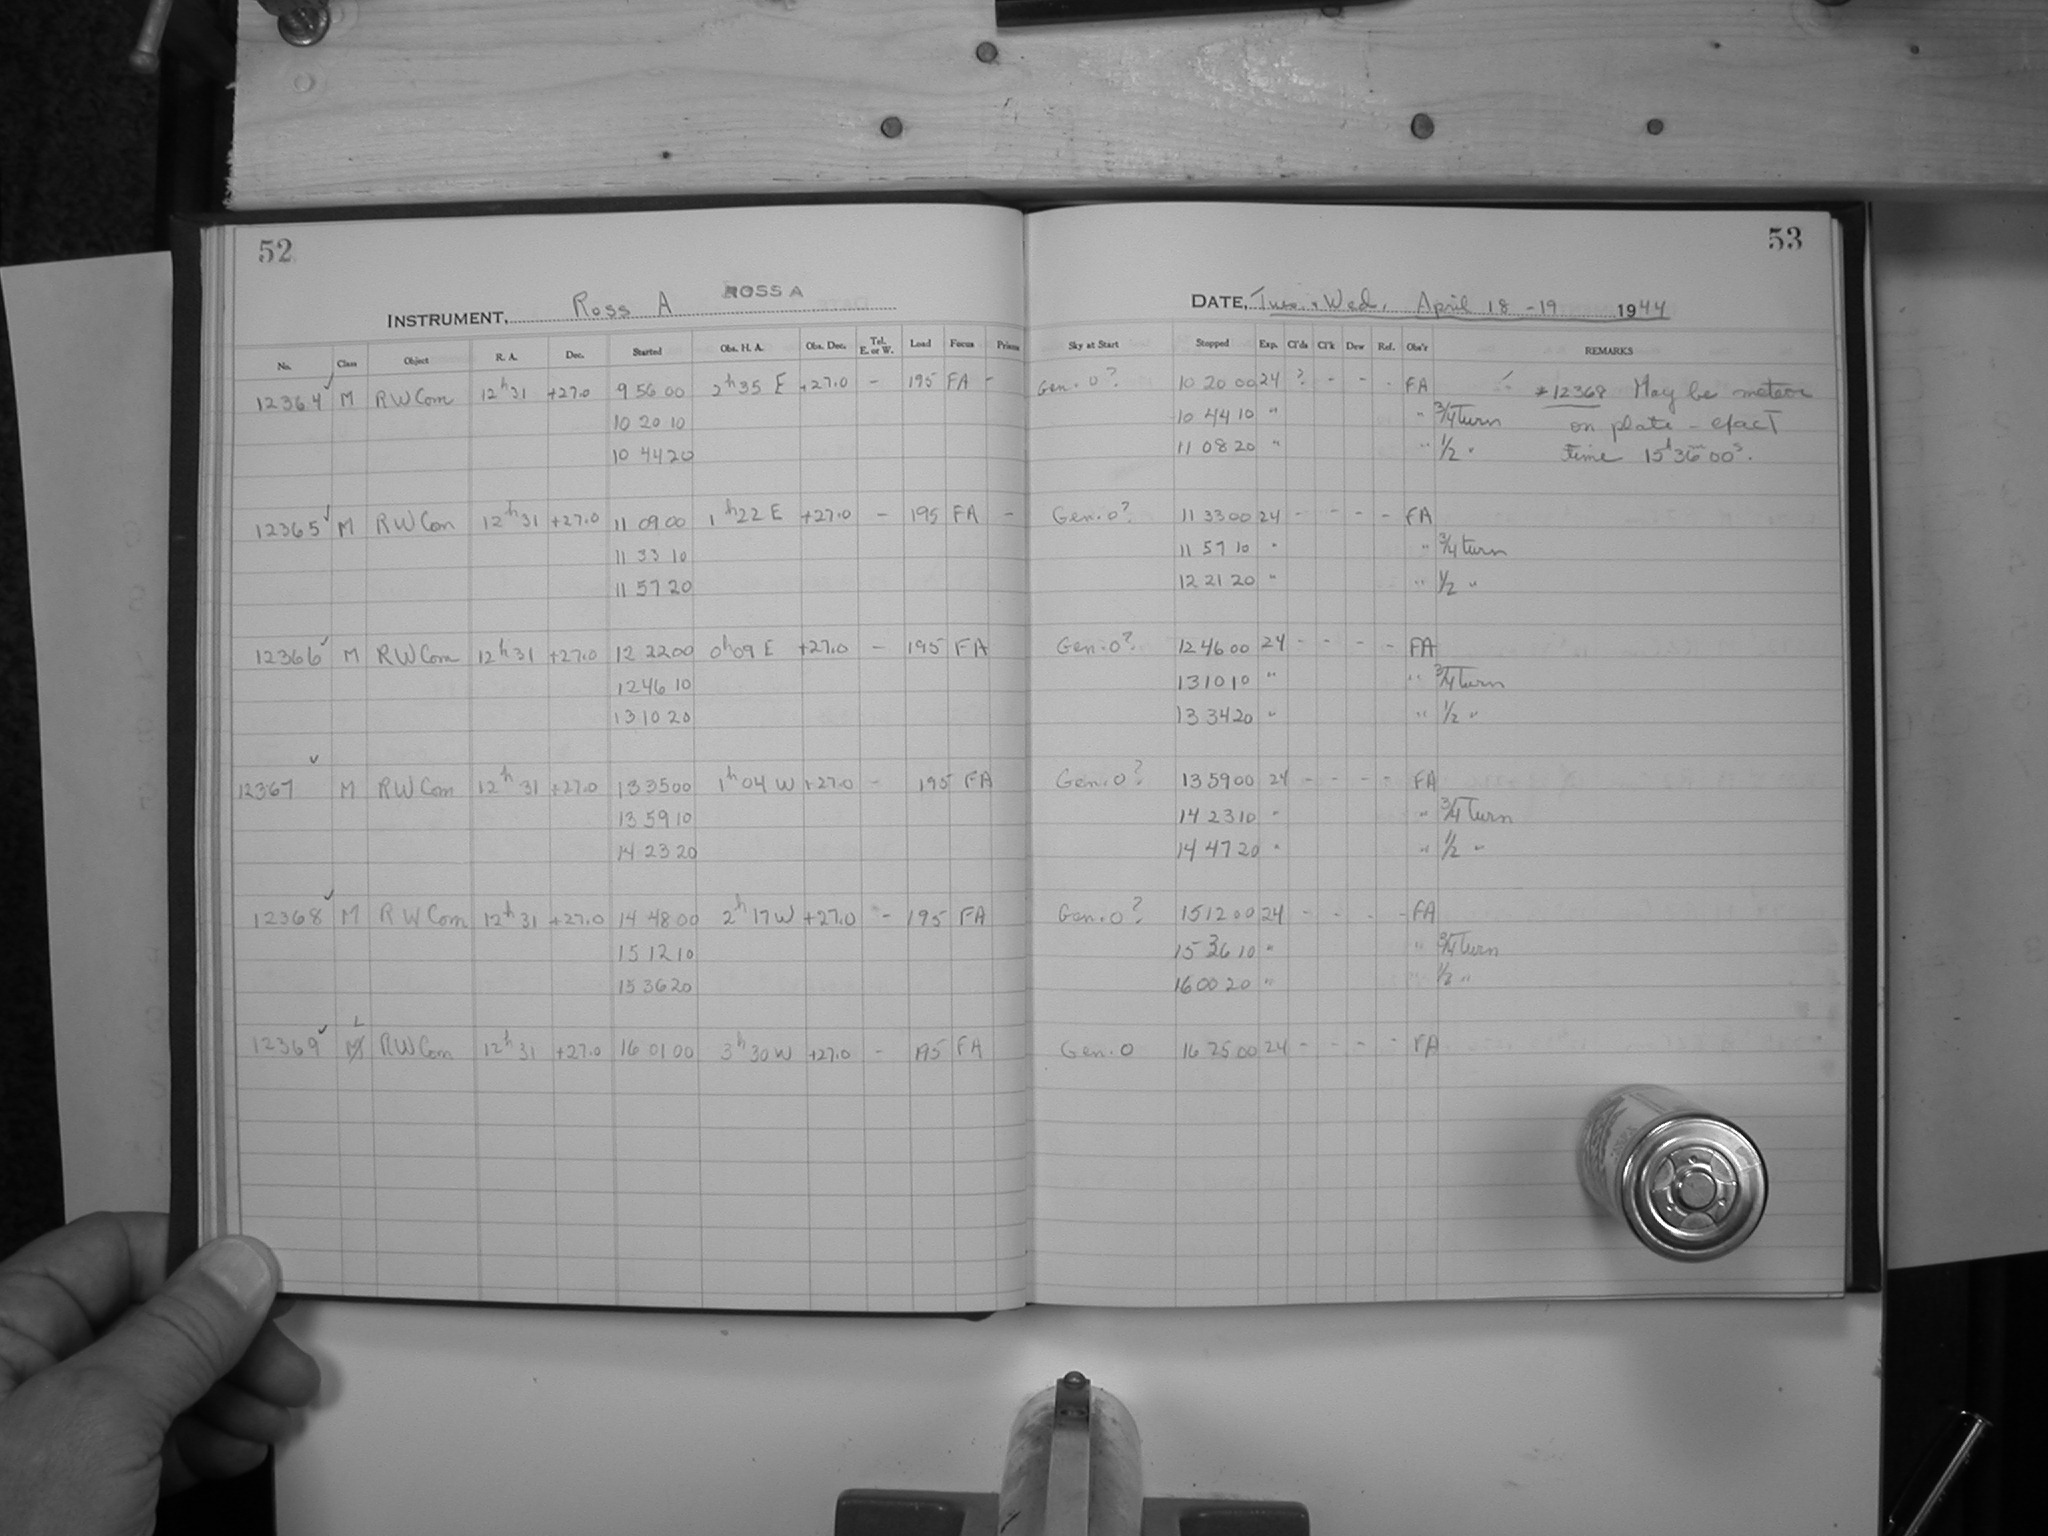 52
ROSS A
INSTRUMENT, Ross A
No. Class Object R. A. Dec. Started Obs. H. A. Obs. Dec. Tel. E. or W. Load Focus Prisms
12364 ✓ M RW Com 12h31 +27.0 9 56 00 2h35 E +27.0 - 195 FA -
10 20 10
10 44 20
12365 ✓ M RW Com 12h31 +27.0 11 09 00 1h22 E +27.0 - 195 FA -
11 33 10
11 57 20
12366 ✓ M RW Com 12h31 +27.0 12 22 00 0h09 E +27.0 - 195 FA
12 46 10
13 10 20
12367 ✓ M RW Com 12h31 +27.0 13 35 00 1h04 W +27.0 - 195 FA
13 59 10
14 23 20
12368 ✓ M RW Com 12h31 +27.0 14 48 00 2h17 W +27.0 - 195 FA
15 12 10
15 36 20
L
12369 ✓ M RW Com 12h31 +27.0 16 01 00 3h30 W +27.0 - 195 FA
53
DATE, Tues. + Wed. April 18 - 19 1944
Sky at Start Stopped Exp. Cl'ds Cl'k Dew Ref. Obs'r REMARKS
Gen. 0? 10 20 00 24 ? - - - FA *12368 May be meteor
10 44 10 " " 3/4 turn on plate - efact
11 08 20 " " 1/2 " time 15h36m00s.
Gen. 0? 11 33 00 24 - - - - FA
11 57 10 " " 3/4 turn
12 21 20 " " 1/2 "
Gen. 0? 12 46 00 24 - - - - FA
13 10 10 " " 3/4 turn
13 34 20 " " 1/2 "
Gen. 0? 13 59 00 24 - - - - FA
14 23 10 " " 3/4 turn
14 47 20 " " 1/2 "
Gen. 0? 15 12 00 24 - - - - FA
15 36 10 " " 3/4 turn
16 00 20 " " 1/2 "
Gen. 0 16 25 00 24 - - - - FA